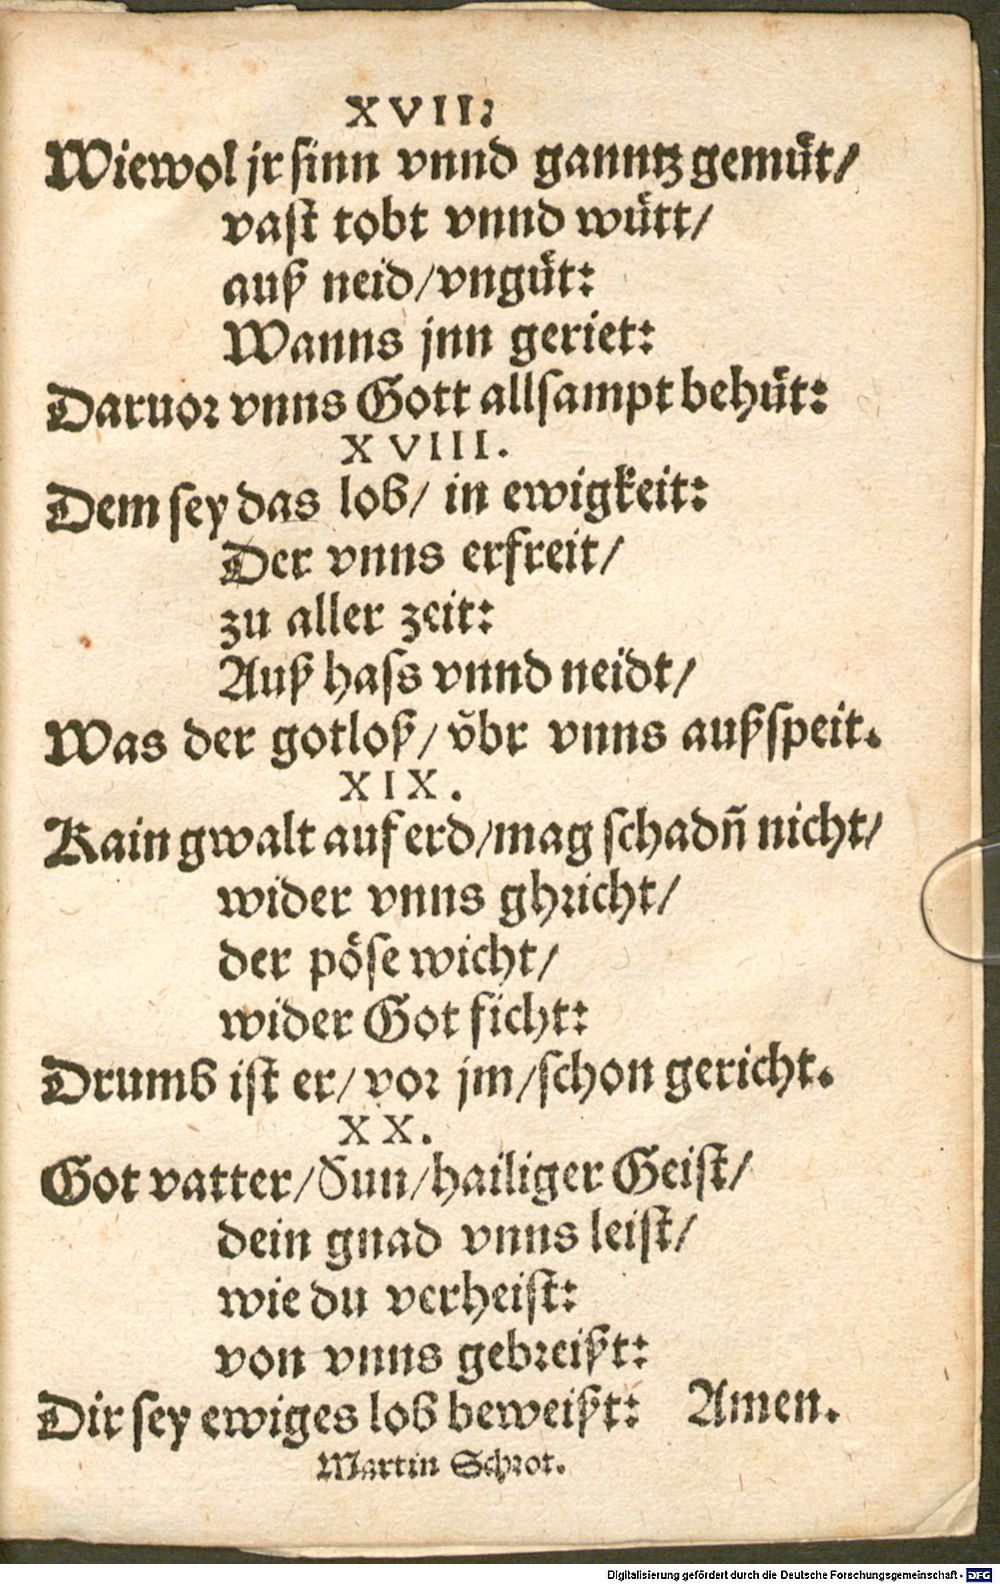 XVII:
Wiewol jr sinn vnnd ganntz gemuͤt/
vast tobt vnnd wuͤtt/
auß neid/vnguͤt:
Wanns jnn geriet:
Daruor vnns Gott allsampt behuͤt:
XVIII.
Dem sey das lob/ in ewigkeit:
Der vnns erfreit/
zu aller zeit:
Auß hass vnnd neidt/
Was der gotloß/ vͤbr vnns außspeit.
XIX.
Kain gwalt auf erd/mag schadn̄ nicht/
wider vnns ghricht/
der poͤse wicht/
wider Got ficht:
Drumb ist er/ vor jm/schon gericht.
XX.
Got vatter/Sun/hailiger Geist/
dein gnad vnns leist/
wie du verheist:
von vnns gebreißt:
Dir sey ewiges lob beweißt: Amen.
Martin Schrot.
Digitalisierung gefördert durch die Deutsche Forschungsgemeinschaft - DFG